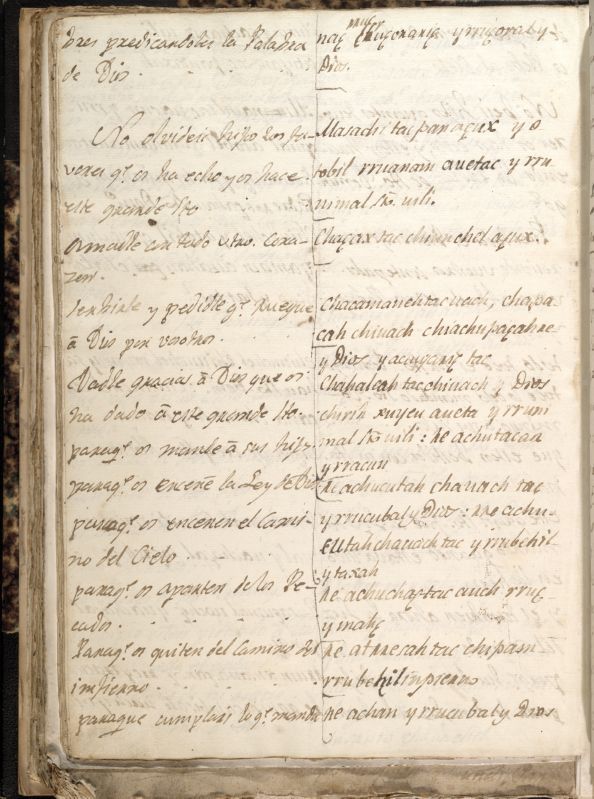 dres predicandoles la Palabra
de Dios.
No olvideis hijos los fa-
vores q.e os ha echo y os hace
este grande Sto
Amadle con todo vtro. Cora-
zon.
servirle y pedidle q.e Ruegue
â Dios por vosotros.
Dadle gracias â Dios que os
ha dado â este grande Sto.
paraq.e os mande â sus hijos
paraq.e os enceñe la Ley de Dios
paraq.e os encenen el Cami-
no del Cielo
paraq.e os aparten de los Pe-
cados.
Paraq.e os quiten del camino del
infierno.
paraque cumplais lo q.e manda
muçr
y rruçoral y
Dios.
Masachi tac pan açux y o
tobil rruanam auetac y rru
nimal Sto. uili.
Chaçax tac chiunchel açux.
Chacamaneh tac uach, chapa
cah chinach chiachupaçahne
y Dios y acuyanic tac
Chapaleah tac chinach y Dios
chirih xuyeu aueta y rruni
mal Sto uili: ne achutacan
y rracun
ne achucutah chauach tac
y rrucubal y Dios: ne achu-
cutah chauach tac y rrubehil
y taxah
ne achuchaçtac auch rruç-
y malic
ne atnnesah tac chipam
rrubehil ynpierno
ne achan y rrucubal y Dios